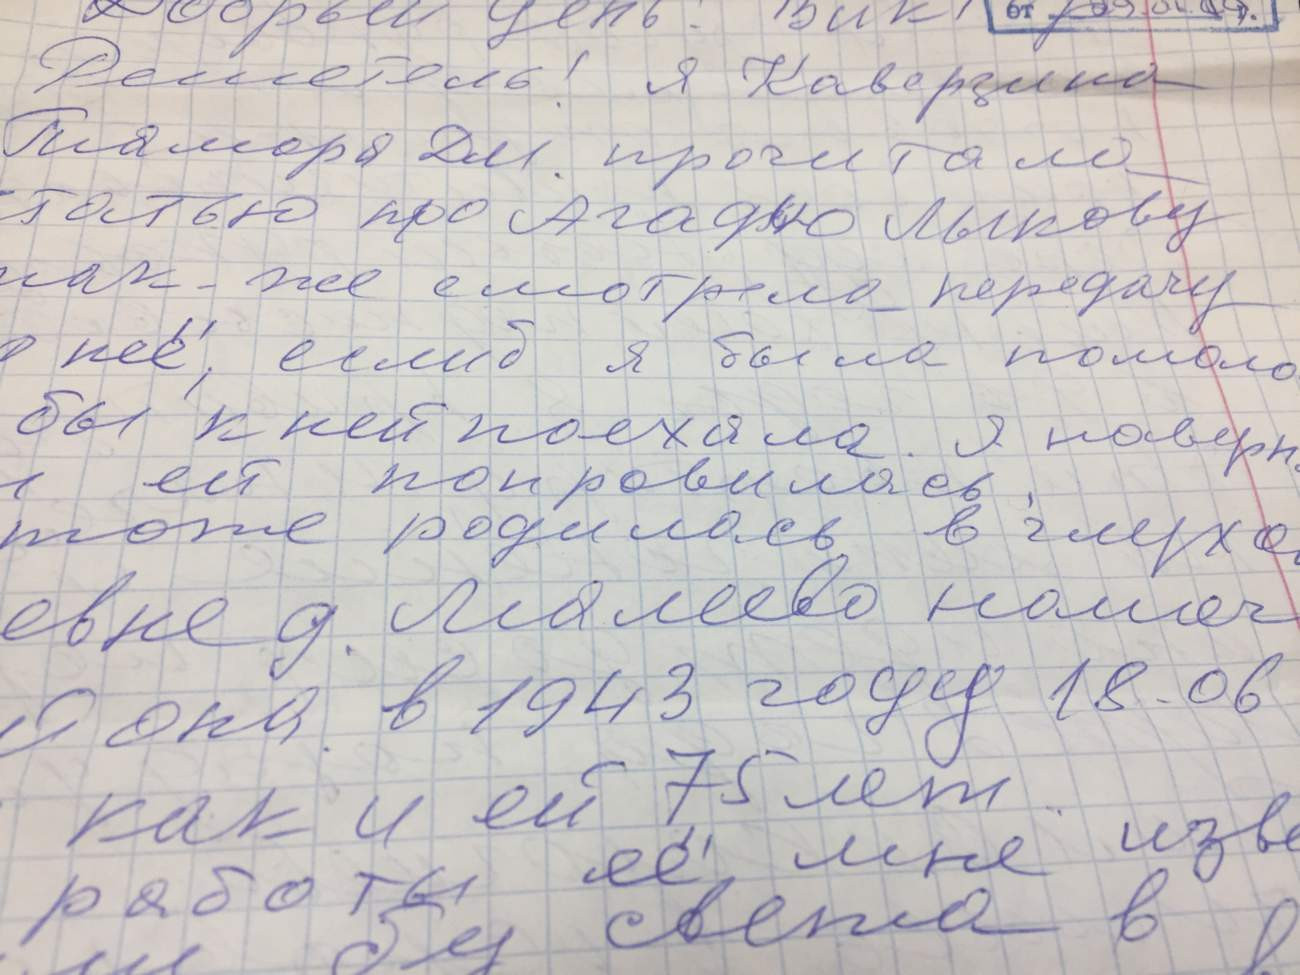 Добрый день! Вик
от 09.01.19.
Решетель! я Каверзина
Тиамора Дм. прочитала
татью про Агафью Лыкову
так-же смотрела передачу
неё, еслиб я была помоло
бы к ней поехала. Я наверн
ей понровилась,
тоже родилась в глухо
евне д. Малеево нашег
она. в 1943 году 18-06
как и ей 75 лет.
работы её мне изве
бу света в